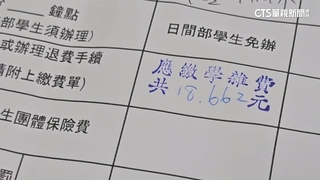 CTS華視新聞
鐘點
部學生須辦理)
日間部學生免辦
或辦理退費手續
請附上繳費單)
應繳學雜費
共18,662元
生團體保險費